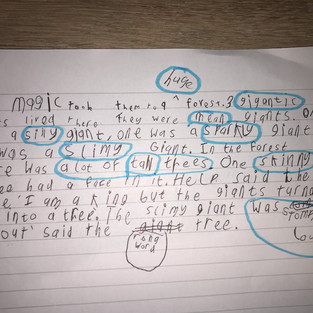 huge
magic took them to a ^ forest. 3 gigantic
lived there they were mean giants. On
a silly giant, one was a sparky giant
was a slimy Giant. In the forest
re was a lot of tall trees One skinny
ee had a face in it. Help said the
e. 'I am a king but the giants turn
into a tree. The slimy giant was
out' said the tree. stomp
rong
word